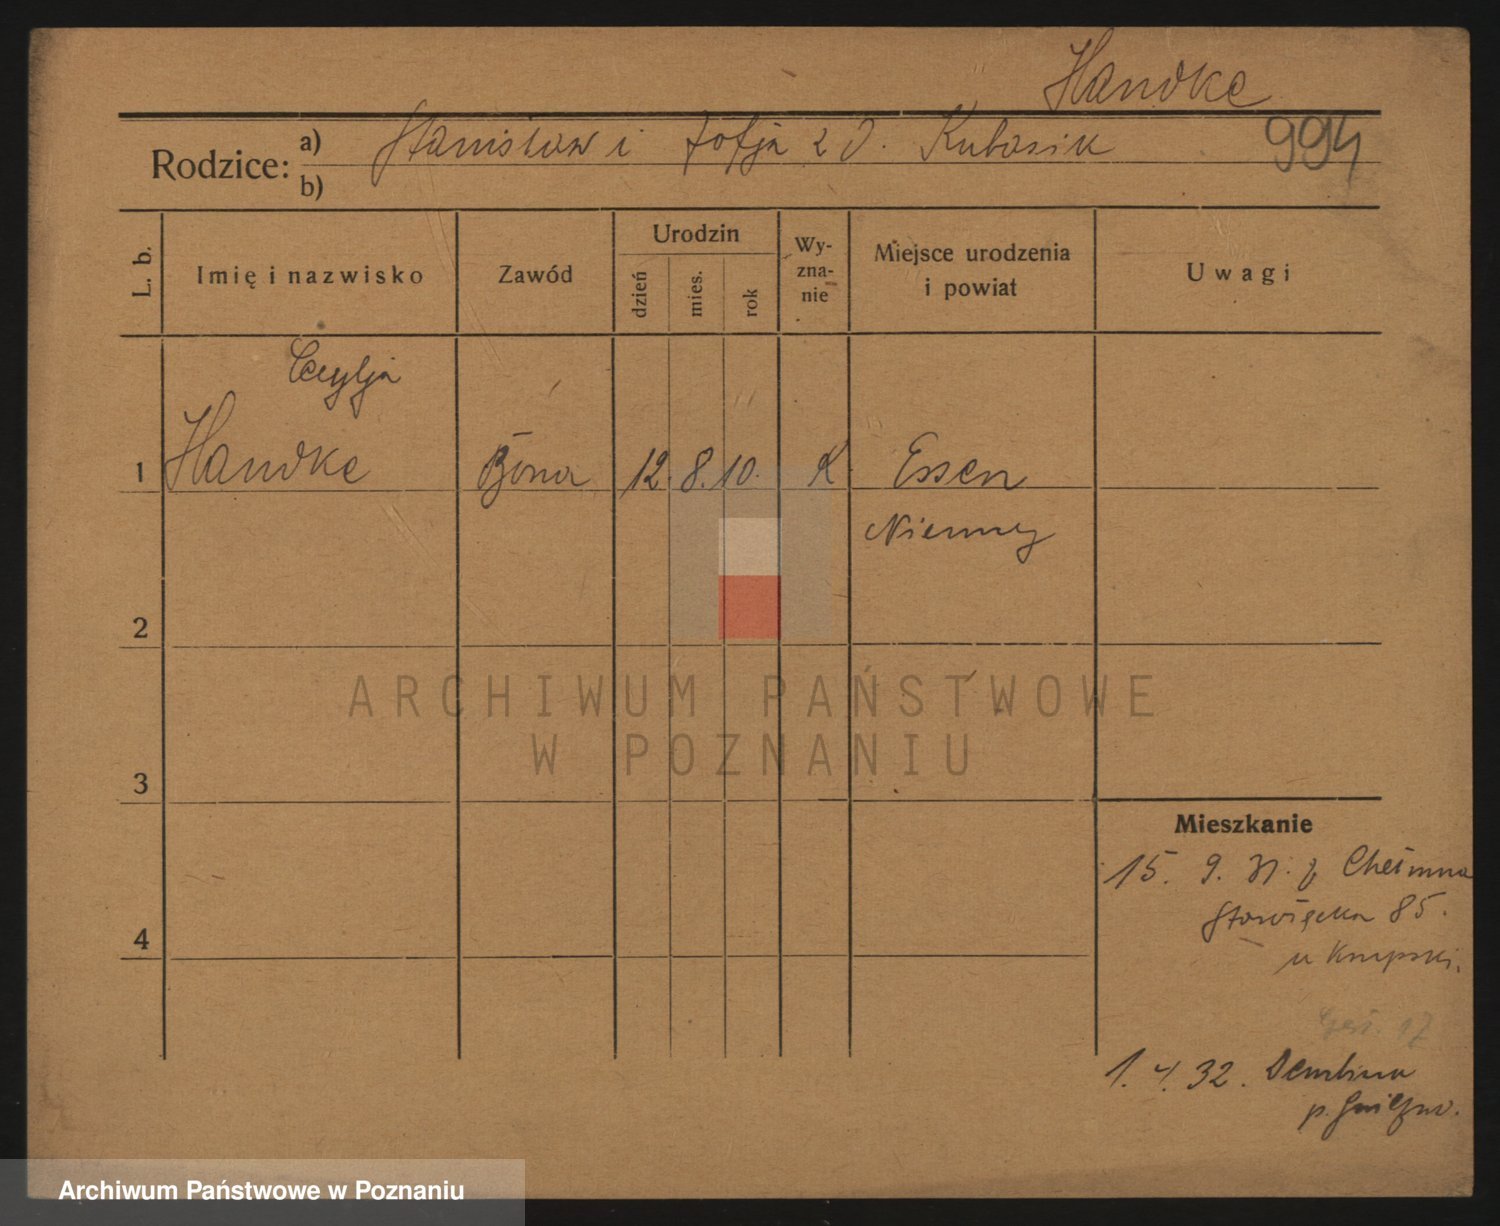 Handke
Rodzice: a) Stanisław i Zofja z d. Kubasik 994
b)
L. b. Imię i nazwisko Zawód Urodzin dzień mies. rok Wy-zna-nie Miejsce urodzenia i powiat Uwagi
Cecylja
1 Handke Bona 12. 8. 10. K Essen
Niemcy
2
ARCHIWUM PAŃSTWOWE
W POZNANIU
3
Mieszkanie
15. 9. 31. z Chełmna
85.
u
4
17
1. 4. 32. Dembina
p. Gniezno.
Archiwum Państwowe w Poznaniu